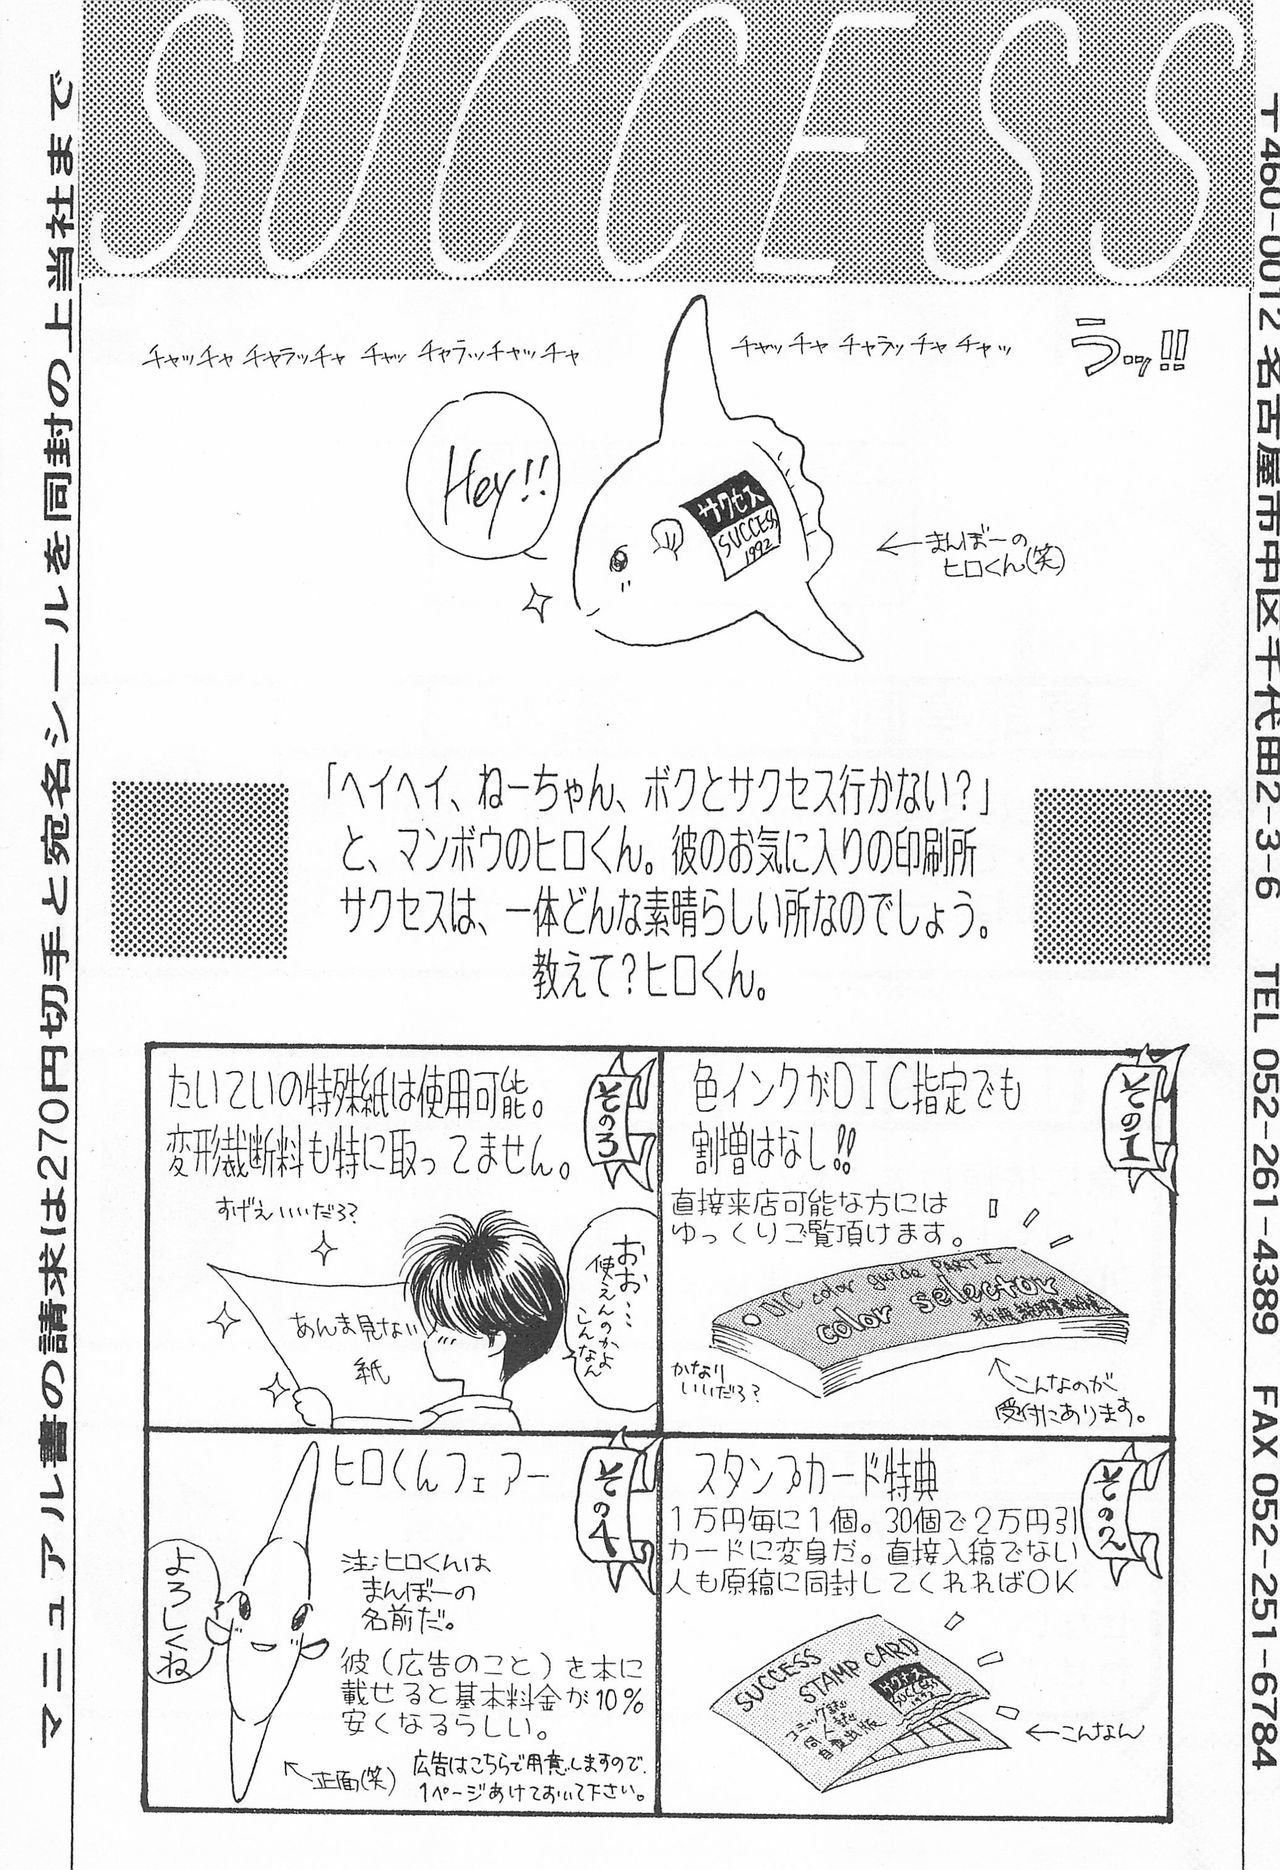 SUCCESS
チャッチャ チャラッチャ チャッ チャラッチャッチャ
チャッチャ チャラッチャ チャッ
うッ!!
Hey!!
サクセス
SUCCESS
1992
←まんぼーの
ヒロくん(笑)
「ヘイヘイ、ねーちゃん、ボクとサクセス行かない？」
と、マンボウのヒロくん。彼のお気に入りの印刷所
サクセスは、一体どんな素晴らしい所なのでしょう。
教えて？ヒロくん。
その1
色インクがDIC指定でも
割増はなし!!
直接来店可能な方には
ゆっくりご覧頂けます。
DIC color guide PART II
color selector
かなり
いいだろ?
←こんなのが
受付にあります。
その2
スタンプカード特典
1万円毎に1個。30個で2万円引
カードに変身だ。直接入稿でない
人も原稿に同封してくれればOK
SUCCESS
STAMP CARD
コミック誌
同人誌
自費出版
サクセス
SUCCESS
1992
←こんなん
その3
たいていの特殊紙は使用可能。
変形裁断料も特に取ってません。
すげえいいだろ?
おお…
使えんのかよ
こんなん
あんま見ない
紙
その4
ヒロくんフェアー
注:ヒロくんは
まんぼーの
名前だ。
よろしくね
彼(広告のこと)を本に
載せると基本料金が10%
安くなるらしい。
←正面(笑)
広告はこちらで用意しますので、
1ページあけておいて下さい。
〒460-0012 名古屋市中区千代田2-3-6 TEL 052-261-4389 FAX 052-251-6784
マニュアル書の請求は270円切手と宛名シールを同封の上当社まで